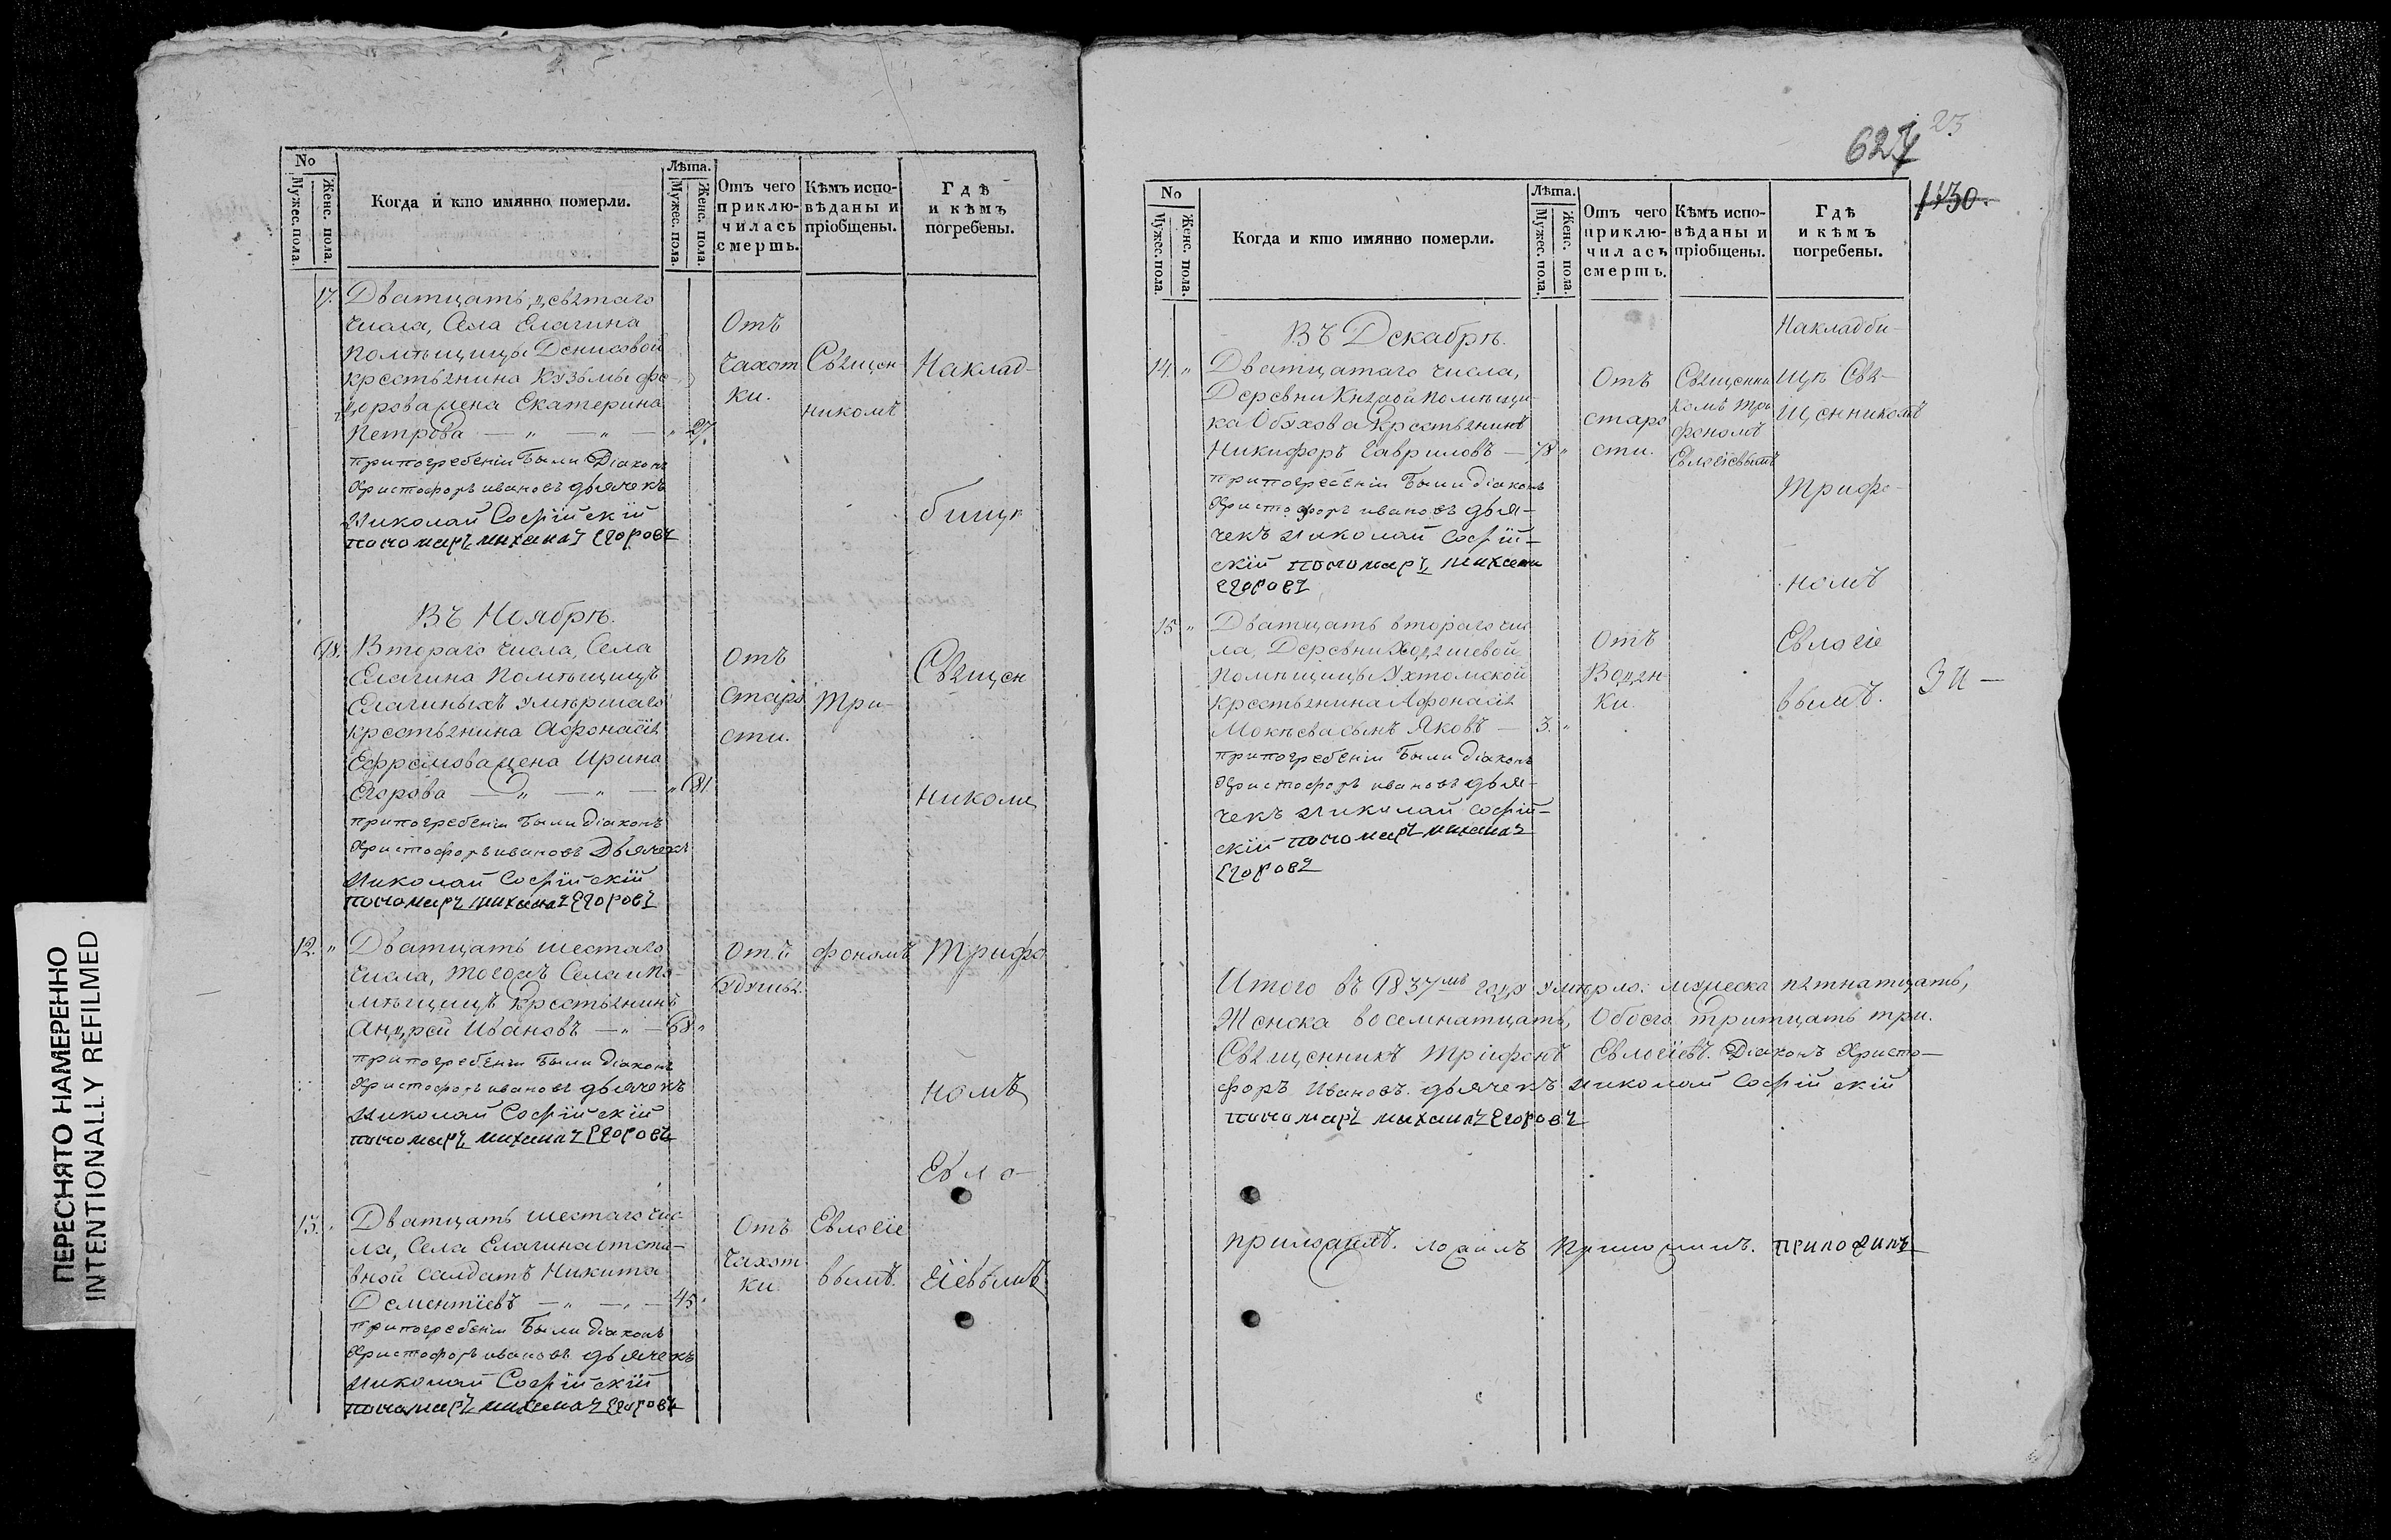 No
Мужес. пола.
Женс. пола.
Когда и кто имянно померли.
Лѣта.
Мужес. пола.
Женс. пола.
Отъ чего
приклю-
чилась
смерть.
Кѣмъ испо-
вѣданы и
пріобщены.
Гдѣ
и кѣмъ
погребены.
17. Дватцать девятаго
числа, Села Елагина
помѣщицы Денисовой
крестьянина Кузьмы Фе-
дорова жена Екатерина
Петрова — „ — „ — „ 27.
при погребеніи были Діаконъ
Христофоръ ивановъ дьячекъ
Николай Софійскій
пономаръ михаилъ Егоровъ
Отъ
чахот
ки.
Священ
никомъ
Наклад-
бищѣ
Въ Ноябрѣ.
18. Втораго числа, Села
Елагина помѣщицъ
Елагиныхъ умершаго
крестьянина Афонасія
Ефремова жена Ирина
Егорова — „ — „ — „ 81
при погребеніи были діаконъ
Христофоръ ивановъ Дьячекъ
Николай Софійскій
пономаръ михаилъ Егоровъ
Отъ
старо
сти.
Три-
Священ
никомъ
12. „ Дватцать шестаго
числа, тогожъ Села и по-
мѣщицъ крестьянинъ
Андрей Ивановъ — „ — 68 „
при погребеніи были діаконъ
Христофоръ ивановъ дьячекъ
Николай Софійскій
пономаръ михаилъ Егоровъ
Отъ
удушья.
фономъ
Трифо
номъ
Евло-
13. „ Дватцать шестаго чис-
ла, Села Елагина отста-
вной салдатъ Никита
Дементіевъ — „ — „ — 45 „
при погребеніи были діаконъ
Христофоръ ивановъ дьячекъ
Николай Софійскій
пономаръ михаилъ Егоровъ
Отъ
чахот
ки.
Евлогіе
вымъ.
гіевымъ
627 23
1430
No
Мужес. пола.
Женс. пола.
Когда и кто имянно померли.
Лѣта.
Мужес. пола.
Женс. пола.
Отъ чего
приклю-
чилась
смерть.
Кѣмъ испо-
вѣданы и
пріобщены.
Гдѣ
и кѣмъ
погребены.
Въ Декабрѣ.
14. „ Дватцатаго числа,
Деревни помѣщи-
ка Обухова крестьянинъ
Никифоръ Гавриловъ — 78 „
при погребеніи были діаконъ
Христофоръ ивановъ дья-
чекъ Николай Софій-
скій пономаръ михаилъ
Егоровъ
Отъ
старо
сти.
Священни
комъ Три
фономъ
Евлогіевымъ
Накладби-
щѣ Свя-
щенникомъ
Трифо-
номъ
15. „ Дватцать втораго чис
ла, Деревни Ходяшевой
помѣщицы Ухтомской
крестьянина Афонасія
Мокѣева сынъ Яковъ — 3. „
при погребеніи были діаконъ
Христофоръ ивановъ дья-
чекъ Николай Софій-
скій пономаръ михаилъ
Егоровъ
Отъ
Водян
ки.
Евлогіе
вымъ.
ЗИ —
Итого въ 1837мъ году умерло: мужеска пятнатцать,
Женска восемнатцать, Обоего тритцать три.
Священникъ Тріфонъ Евлогіевъ. Діаконъ Христо-
форъ Ивановъ. дьячекъ Николай Софійскій
пономаръ михаилъ Егоровъ
приложилъ. ложилъ приложилъ. приложилъ
ПЕРЕСНЯТО НАМЕРЕННО
INTENTIONALLY REFILMED